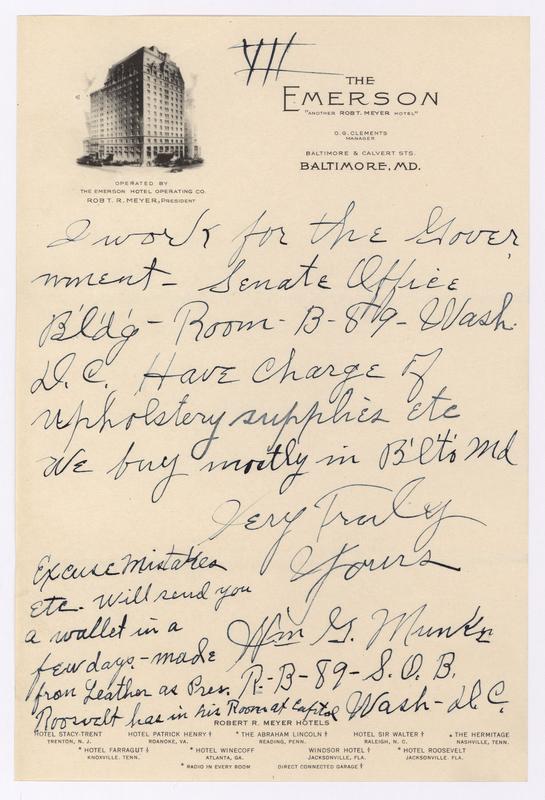 VII
THE
EMERSON
"ANOTHER ROBT. MEYER HOTEL"
O.G. CLEMENTS
MANAGER
BALTIMORE & CALVERT STS.
BALTIMORE, MD.
OPERATED BY
THE EMERSON HOTEL OPERATING CO.
ROBT. R. MEYER, PRESIDENT
I work for the Gover
nment - Senate Office
B'ld'g - Room - B-89 - Wash.
D.C. Have charge of
upholstery supplies etc
We buy mostly in B'lto Md
Very Truly
Yours
Wm G.
R-B-89-S.O.B.
Wash-D.C.
Excuse Mistakes
etc. Will send you
a wallet in a
few days - made
from Leather as Pres.
Roosvelt has in his Room at Capitol
ROBERT R. MEYER HOTELS
HOTEL STACY-TRENT
TRENTON, N. J.
HOTEL PATRICK HENRY ‡
ROANOKE, VA.
* THE ABRAHAM LINCOLN ‡
READING, PENN.
HOTEL SIR WALTER ‡
RALEIGH, N. C.
* THE HERMITAGE
NASHVILLE, TENN.
* HOTEL FARRAGUT ‡
KNOXVILLE, TENN.
* HOTEL WINECOFF
ATLANTA, GA.
WINDSOR HOTEL ‡
JACKSONVILLE, FLA.
* HOTEL ROOSEVELT
JACKSONVILLE, FLA.
* RADIO IN EVERY ROOM
DIRECT CONNECTED GARAGE ‡